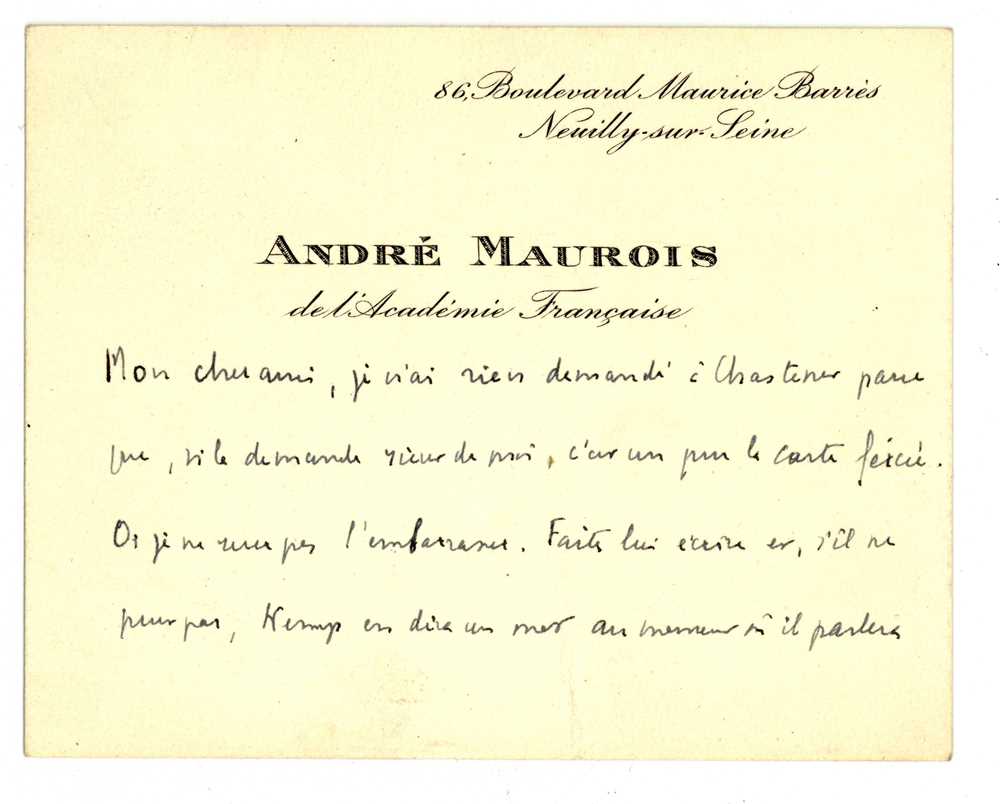 86, Boulevard Maurice Barrès
Neuilly-sur-Seine
ANDRÉ MAUROIS
de l'Académie Française
Mon cher ami, je n'ai rien demandé à Chastenet parce
que, si la demande vient de moi, c'est un peu la carte forcée.
Or je ne veux pas l'embarrasser. Faites lui écrire et, s'il ne
peut pas, Kemp en dira un mot au moment où il parlera